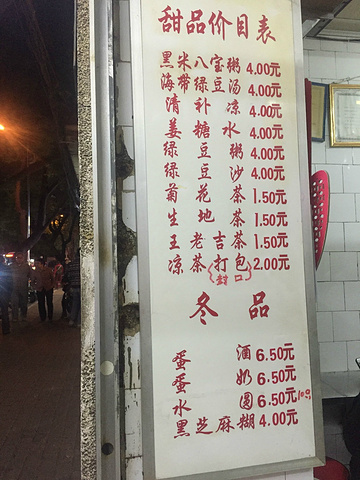 甜品价目表
黑米八宝粥 4.00元
海带绿豆汤 4.00元
清补凉 4.00元
姜糖水 4.00元
绿豆粥 4.00元
绿豆沙 4.00元
菊花茶 1.50元
生地茶 1.50元
王老吉茶 1.50元
凉茶打包 2.00元
(封口)
冬品
蛋酒 6.50元
蛋奶 6.50元
水圆 6.50元
黑芝麻糊 4.00元